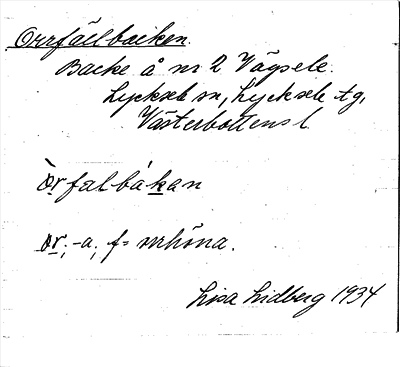 Orrfäelbacken.
Backe å nr 2 Vägsele.
Lycksele sn, Lycksele tg,
Västerbottens l.
òrfalbákan
or, -a, f = orrhöna.
Lisa Lidberg 1934